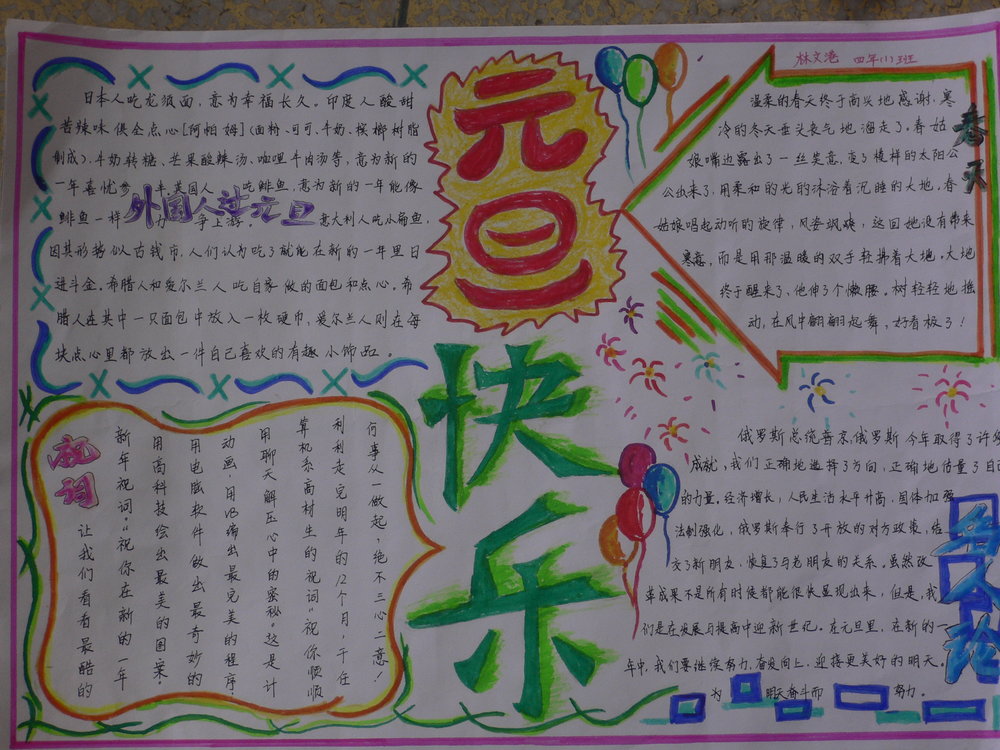 元旦
快乐
林文港 四年(1)班
外国人过元旦
日本人吃龙须面，意为幸福长久。印度人酸甜
苦辣味俱全点心[阿帕姆](面粉、可可、牛奶、槟榔树脂
制成)、牛奶转糖、芒果酸辣汤、咖哩牛肉汤等，意为新的
一年喜忧参 年.英国人 吃鲱鱼.意为新的一年能像
鲱鱼一样 力争上游。 意大利人吃小扁鱼，
因其形势似古钱币，人们认为吃了就能在新的一年里日
进斗金。希腊人和爱尔兰人吃自家做的面包和点心。希
腊人在其中一只面包中放入一枚硬币，爱尔兰人则在每
块点心里都放出一件自己喜欢的有趣小饰品。
春天
温柔的春天终于高兴地感谢，寒
冷的冬天垂头丧气地溜走了。春姑
娘嘴边露出了一丝笑意，变了模样的太阳公
公出来了，用柔和的光的沐浴着沉睡的大地，春
姑娘唱起动听的旋律，风姿飒爽，这回她没有带来
寒意，而是用那温暖的双手轻拂着大地。大地
终于醒来了、他伸了个懒腰。树轻轻地摇
动，在风中翩翩起舞，好看极了！
祝词
让我们看看最酷的
新年祝词:“祝你在新的一年
用高科技绘出最美的图案，
用电脑软件做出最奇妙的
动画，用VB编出最完美的程序，
用聊天解压心中的密秘。”这是计
算机系高材生的祝词“祝你顺顺
利利走完明年的12个月，千任
何事从一做起，绝不三心二意！
名人论
俄罗斯总统普京.俄罗斯今年取得了许多
成就，我们正确地选择了方向，正确地估量了自己
的力量。经济增长，人民生活水平升高，国体加强
法制强化，俄罗斯奉行了开放的对方政策，结
交了新朋友，恢复了与老朋友的关系。虽然改
革成果不是所有时候都能很快显现出来，但是，我
们是在发展与提高中迎新世纪。在元旦里，在新的一
年中，我们要继续努力，奋发向上，迎接更美好的明天。
为 明天奋斗而 努力。